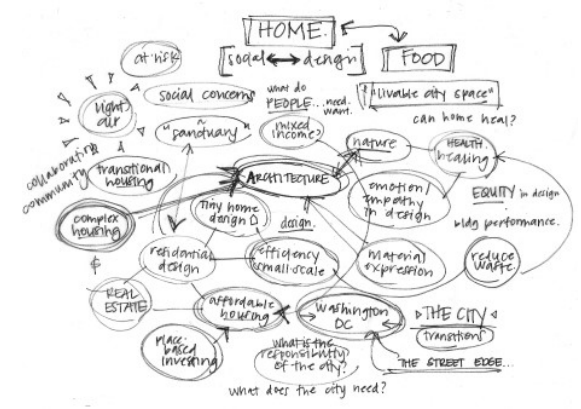 HOME
[social ↔ design]
FOOD
at risk
light
air
social concerns
what do
PEOPLE... need.
want.
"livable city space"
can home heal?
a
"sanctuary"
mixed
income?
nature
HEALTH
healing
collaborative
community
transitional
housing
ARCHITECTURE
emotion/
empathy
in design
EQUITY in design
bldg performance.
complex
housing
$
tiny home
design
design.
residential
design
efficiency
small-scale
material
expression
reduce
waste.
REAL
ESTATE
affordable
housing
Washington
DC
THE CITY
transitions
place-
based
investing
what is the
responsibility
of the city?
THE STREET EDGE...
what does the city need?